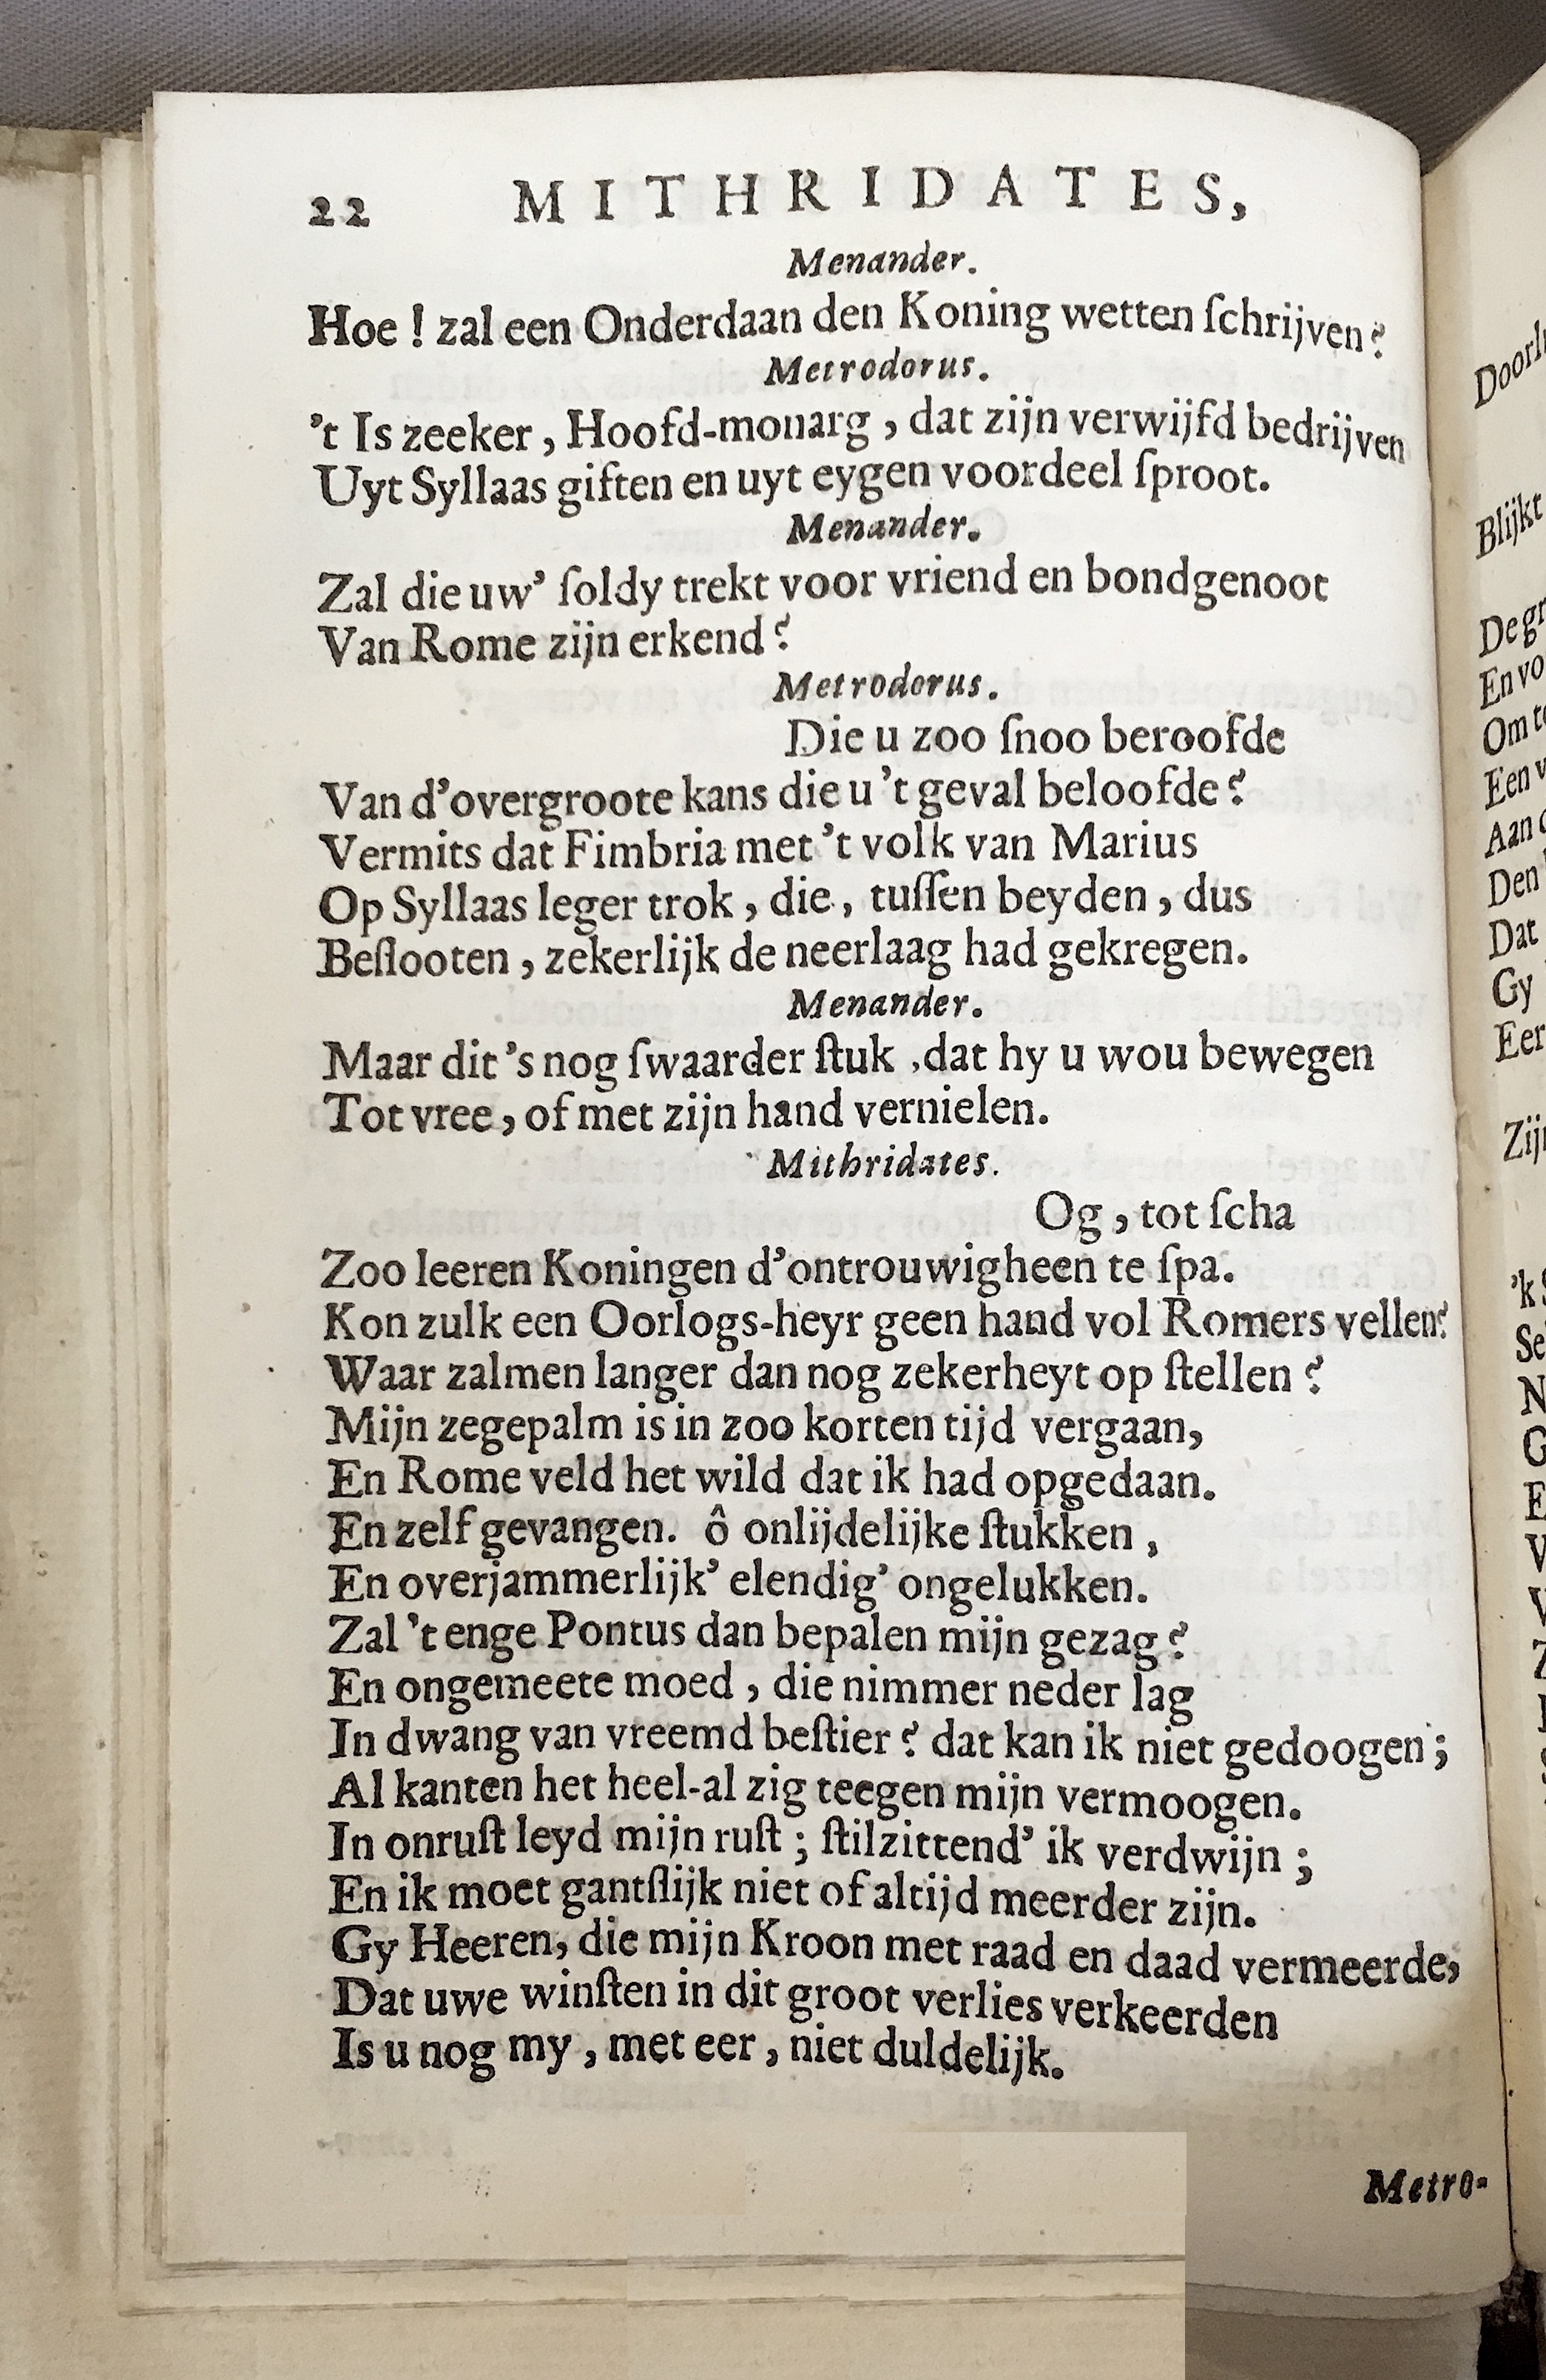 22 MITHRIDATES,
Menander.
Hoe ! zal een Onderdaan den Koning wetten ſchrijven?
Metrodorus.
't Is zeeker, Hoofd-monarg, dat zijn verwijfd bedrijven
Uyt Syllaas giften en uyt eygen voordeel ſproot.
Menander.
Zal die uw' ſoldy trekt voor vriend en bondgenoot
Van Rome zijn erkend?
Metrodorus.
Die u zoo ſnoo beroofde
Van d'overgroote kans die u 't geval beloofde?
Vermits dat Fimbria met 't volk van Marius
Op Syllaas leger trok, die, tuſſen beyden, dus
Beſlooten, zekerlijk de neerlaag had gekregen.
Menander.
Maar dit 's nog ſwaarder ſtuk ,dat hy u wou bewegen
Tot vree, of met zijn hand vernielen.
Mithridates.
Og, tot ſcha
Zoo leeren Koningen d'ontrouwigheen te ſpa.
Kon zulk een Oorlogs-heyr geen hand vol Romers vellen?
Waar zalmen langer dan nog zekerheyt op ſtellen?
Mijn zegepalm is in zoo korten tijd vergaan,
En Rome veld het wild dat ik had opgedaan.
En zelf gevangen. ô onlijdelijke ſtukken,
En overjammerlijk' elendig' ongelukken.
Zal 't enge Pontus dan bepalen mijn gezag?
En ongemeete moed, die nimmer neder lag
In dwang van vreemd beſtier? dat kan ik niet gedoogen;
Al kanten het heel-al zig teegen mijn vermoogen.
In onruſt leyd mijn ruſt; ſtilzittend' ik verdwijn;
En ik moet gantſlijk niet of altijd meerder zijn.
Gy Heeren, die mijn Kroon met raad en daad vermeerde,
Dat uwe winſten in dit groot verlies verkeerden
Is u nog my, met eer, niet duldelijk.
Metro-
Blijkt
Den
Dat
Gy